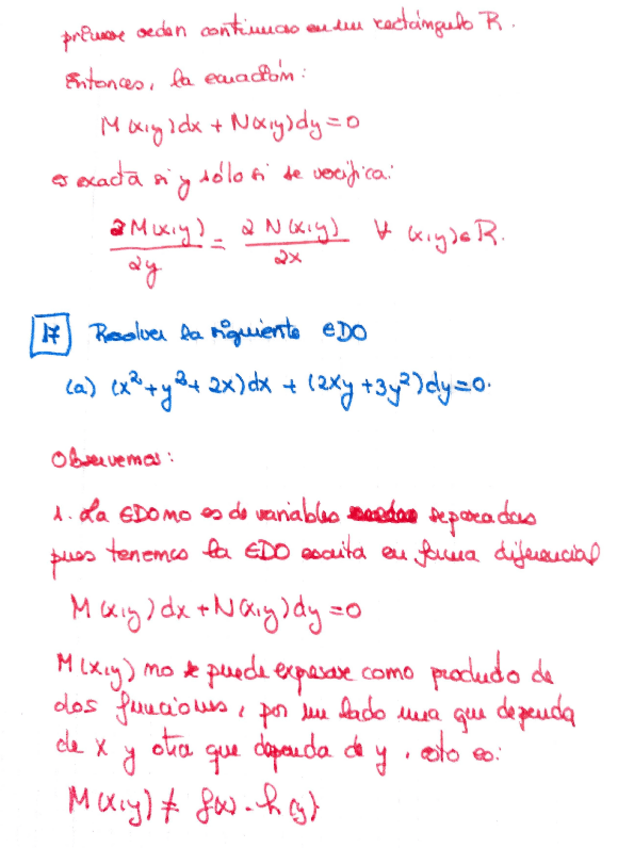 primer orden continuas en un rectángulo R.
Entonces, la ecuación:
M(x,y)dx + N(x,y)dy=0
es exacta si y sólo si se verifica:
∂M(x,y)/∂y = ∂N(x,y)/∂x ∀ (x,y)∈R.
17 Resolver la siguiente EDO
(a) (x²+y²+2x)dx + (2xy+3y²)dy=0.
Observemos:
1. La EDO no es de variables separadas
pues tenemos la EDO escrita en forma diferencial
M(x,y)dx+N(x,y)dy=0
M(x,y) no se puede expresar como producto de
dos funciones, por un lado una que dependa
de x y otra que dependa de y, esto es:
M(x,y) ≠ f(x)·h(y)